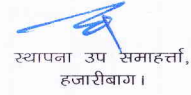 स्थापना उप समाहर्त्ता,
हजारीबाग।